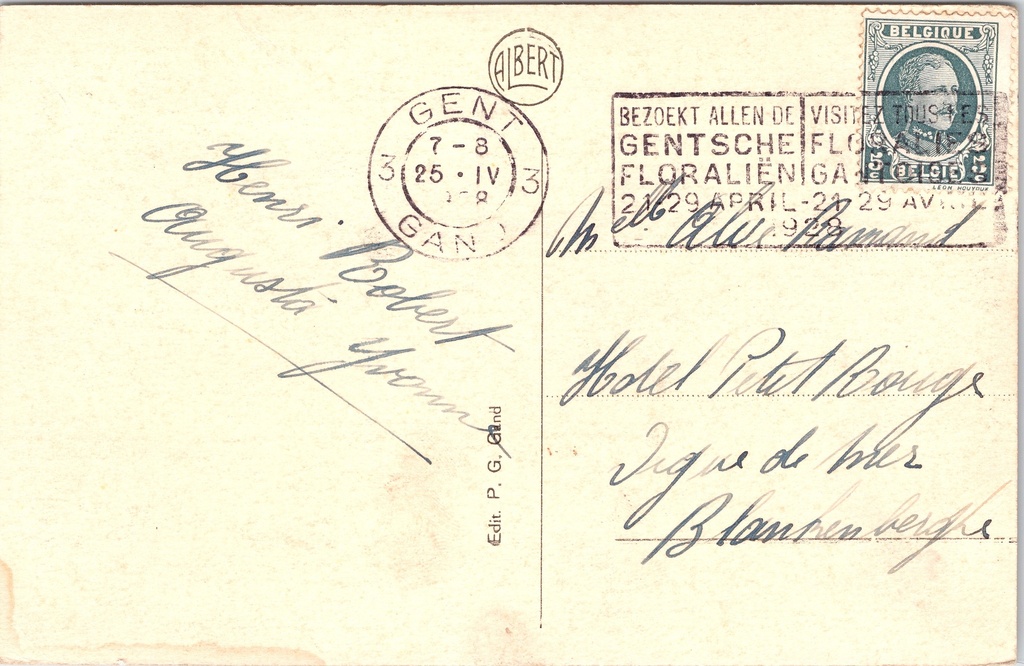 ALBERT
GENT
7-8
3 25 · IV 3
GAND
BEZOEKT ALLEN DE
GENTSCHE
FLORALIËN
21-29 APRIL - 21-29 AVRIL
1928
VISITEZ TOUS LES
FLORALIES
BELGIQUE
BELGIË
Henri Robert
Augusta Yvonne
Edit. P. G. Gand
Melle
Hotel Petit Rouge
Digue de mer
Blankenberghe